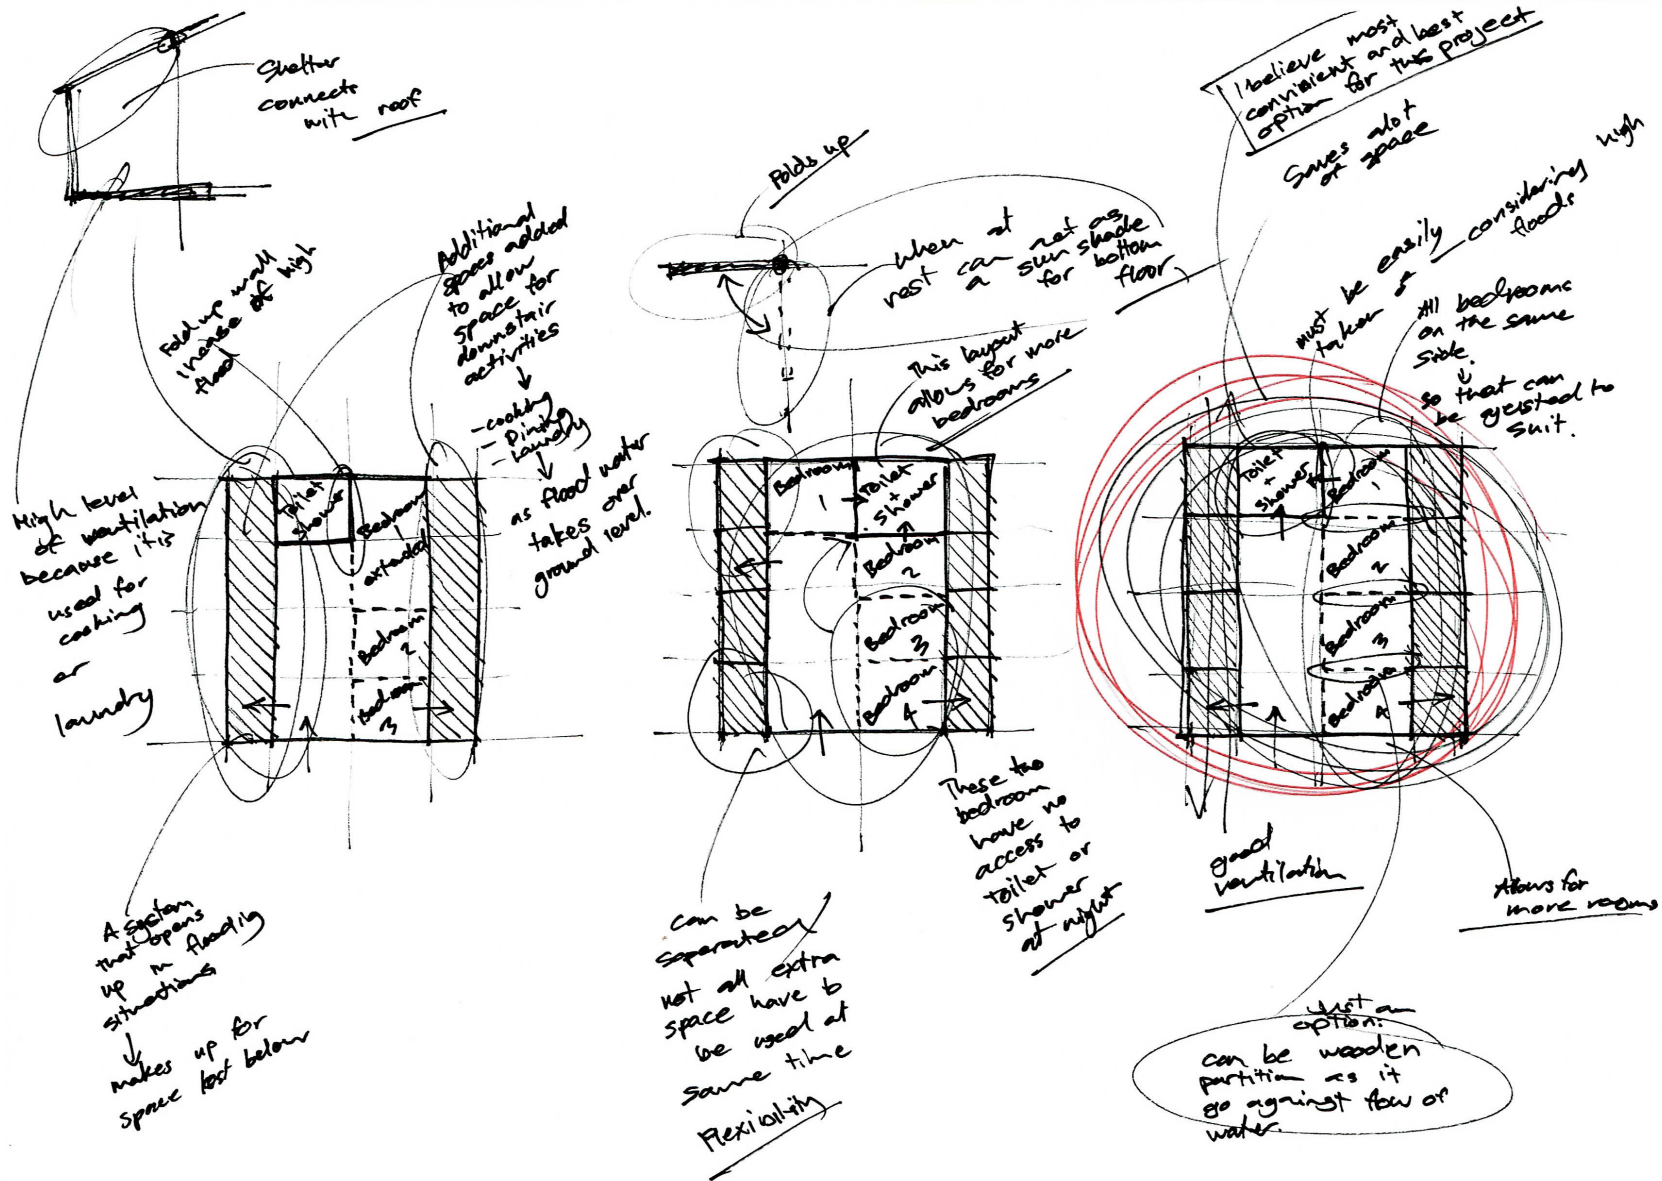 Shelter
connects
with roof
Fold up wall
incase of high
flood
Additional
spaces added
to allow
space for
downstair
activities
- cooking
- Dining
- Laundry
as flood water
takes over
ground level.
High level
of ventilation
because it is
used for
cooking
or
laundry
Toilet
Shower
Bedroom
1
extended
Bedroom
2
Bedroom
3
A system
that opens
up in flooding
situations
makes up for
space lost below
Folds up
when at
rest can act as
a sun shade
for bottom
floor
This layout
allows for more
bedrooms
Bedroom
1
Toilet
+
Shower
Bedroom
2
Bedroom
3
Bedroom
4
can be
seperated
not all extra
space have to
be used at
same time
Flexibility
These two
bedroom
have no
access to
toilet or
shower
at night
I believe most
convinient and best
option for this project
Saves alot
of space
must be easily
considering high
floods
All bedrooms
on the same
side.
so that can
be
to
suit.
Toilet
+
Shower
Bedroom
1
Bedroom
2
Bedroom
3
Bedroom
4
good
ventilation
Allows for
more rooms
Just an
option:
can be wooden
partition as it
go against flow of
water.